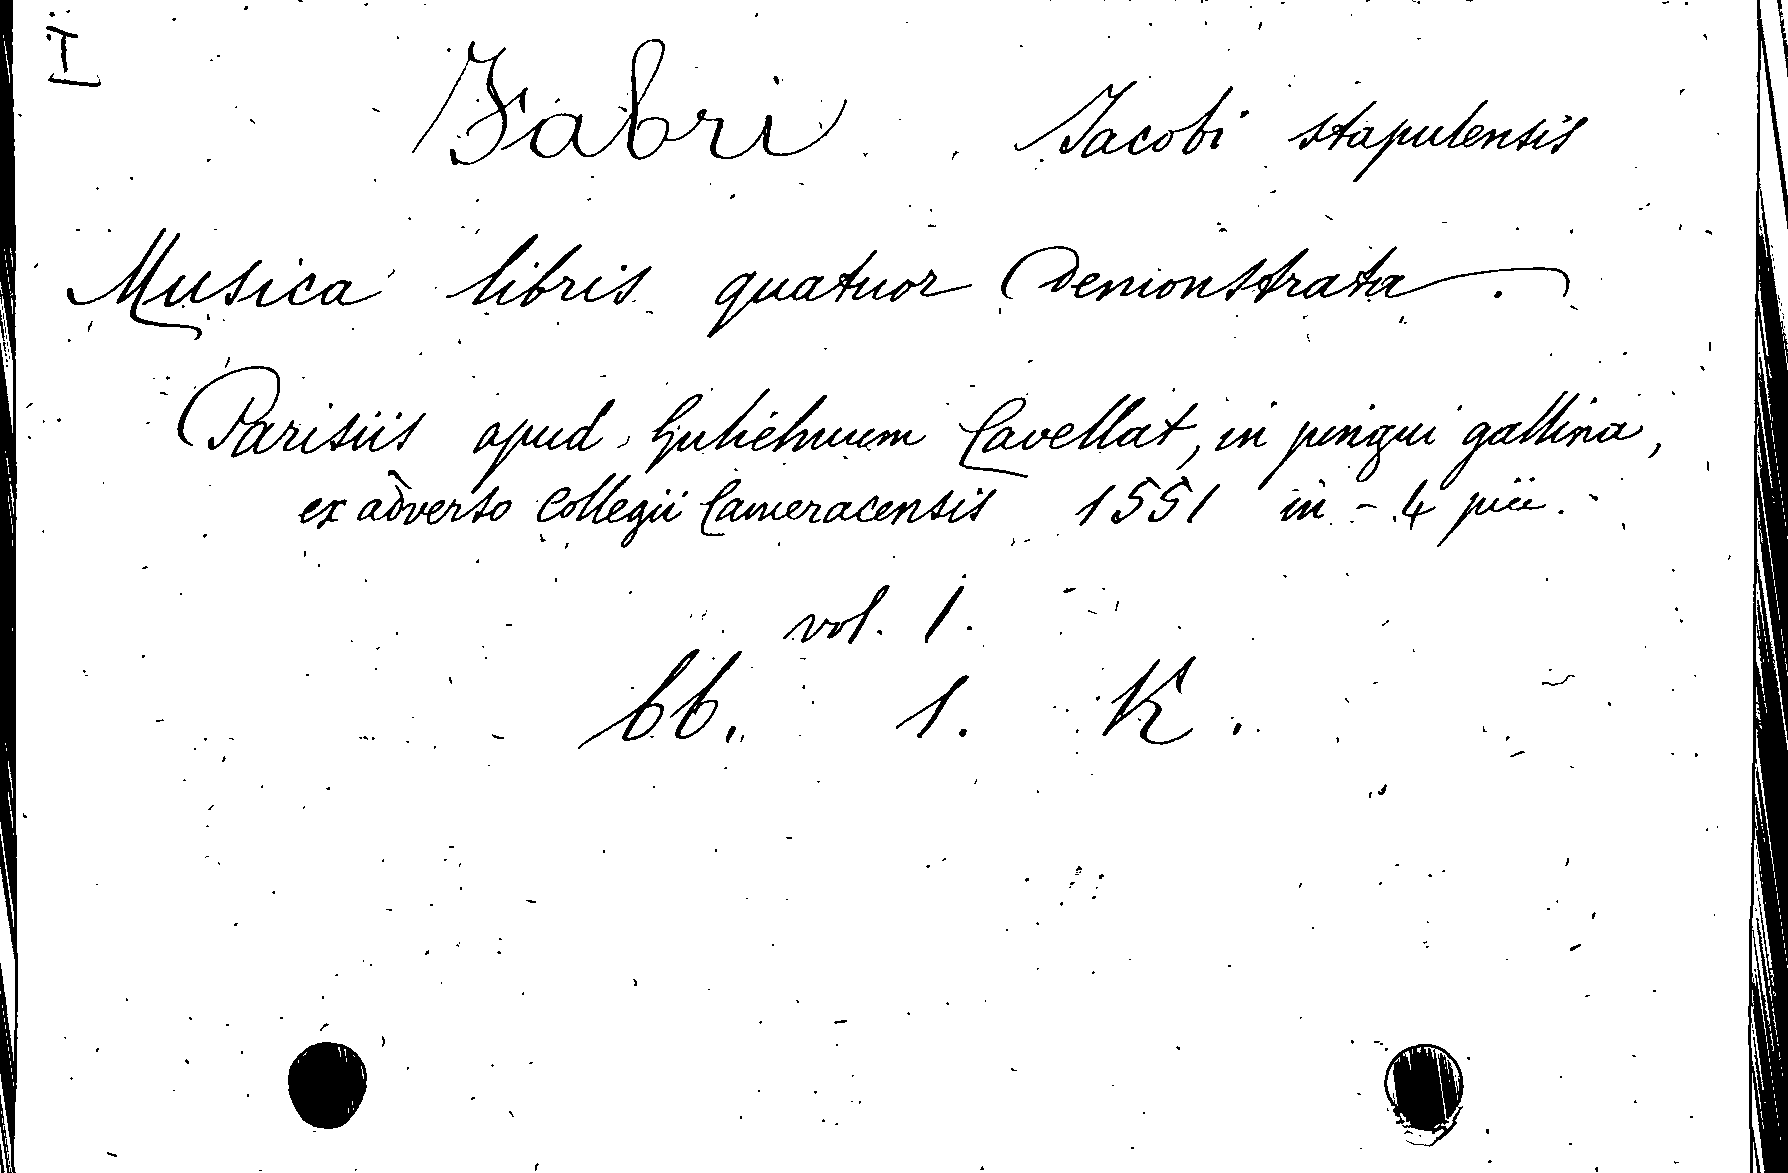 I
Fabri Jacobi stapulensis
Musica libris quatuor Demonstrata.
Parisiis apud Guliélmum Cavellat, in pingui gallina,
ex adverso Collegii Cameracensis 1551 in-4 picc.
vol. 1.
bb. 1. K.